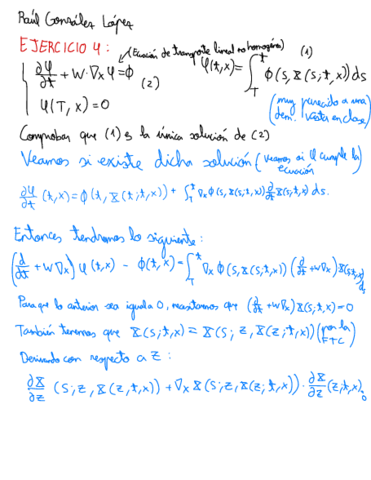 Raúl González López
EJERCICIO 4: (Ecuación de transporte lineal no homogénea) (1)
{ ∂Ψ/∂t + W·∇ₓΨ = ϕ (2) Ψ(t,x) = ∫_T^t ϕ(s, X(s;t,x)) ds
Ψ(T,x) = 0 (muy parecido a una dem. vista en clase)
Comprobar que (1) es la única solución de (2)
Veamos si existe dicha solución (veamos si Ψ cumple la ecuación)
∂Ψ/∂t (t,x) = ϕ(t, X(t;t,x)) + ∫_T^t ∇ₓϕ(s, X(s;t,x)) ∂/∂t X(s;t,x) ds.
Entonces tendremos lo siguiente:
(d/dt + W∇ₓ) Ψ(t,x) - ϕ(t,x) = ∫_T^t ∇ₓϕ(s, X(s;t,x)) (∂/∂t + W∇ₓ) X(s;t,x) ds
Para que lo anterior sea igual a 0, necesitamos que (∂/∂t + W∇ₓ) X(s;t,x) = 0
También tenemos que X(s;t,x) = X(s; z, X(z;t,x)) (por la FTC)
Derivando con respecto a z:
∂X/∂z (s; z, X(z,t,x)) + ∇ₓX(s; z, X(z;t,x)) · ∂X/∂z (z;t,x) = 0